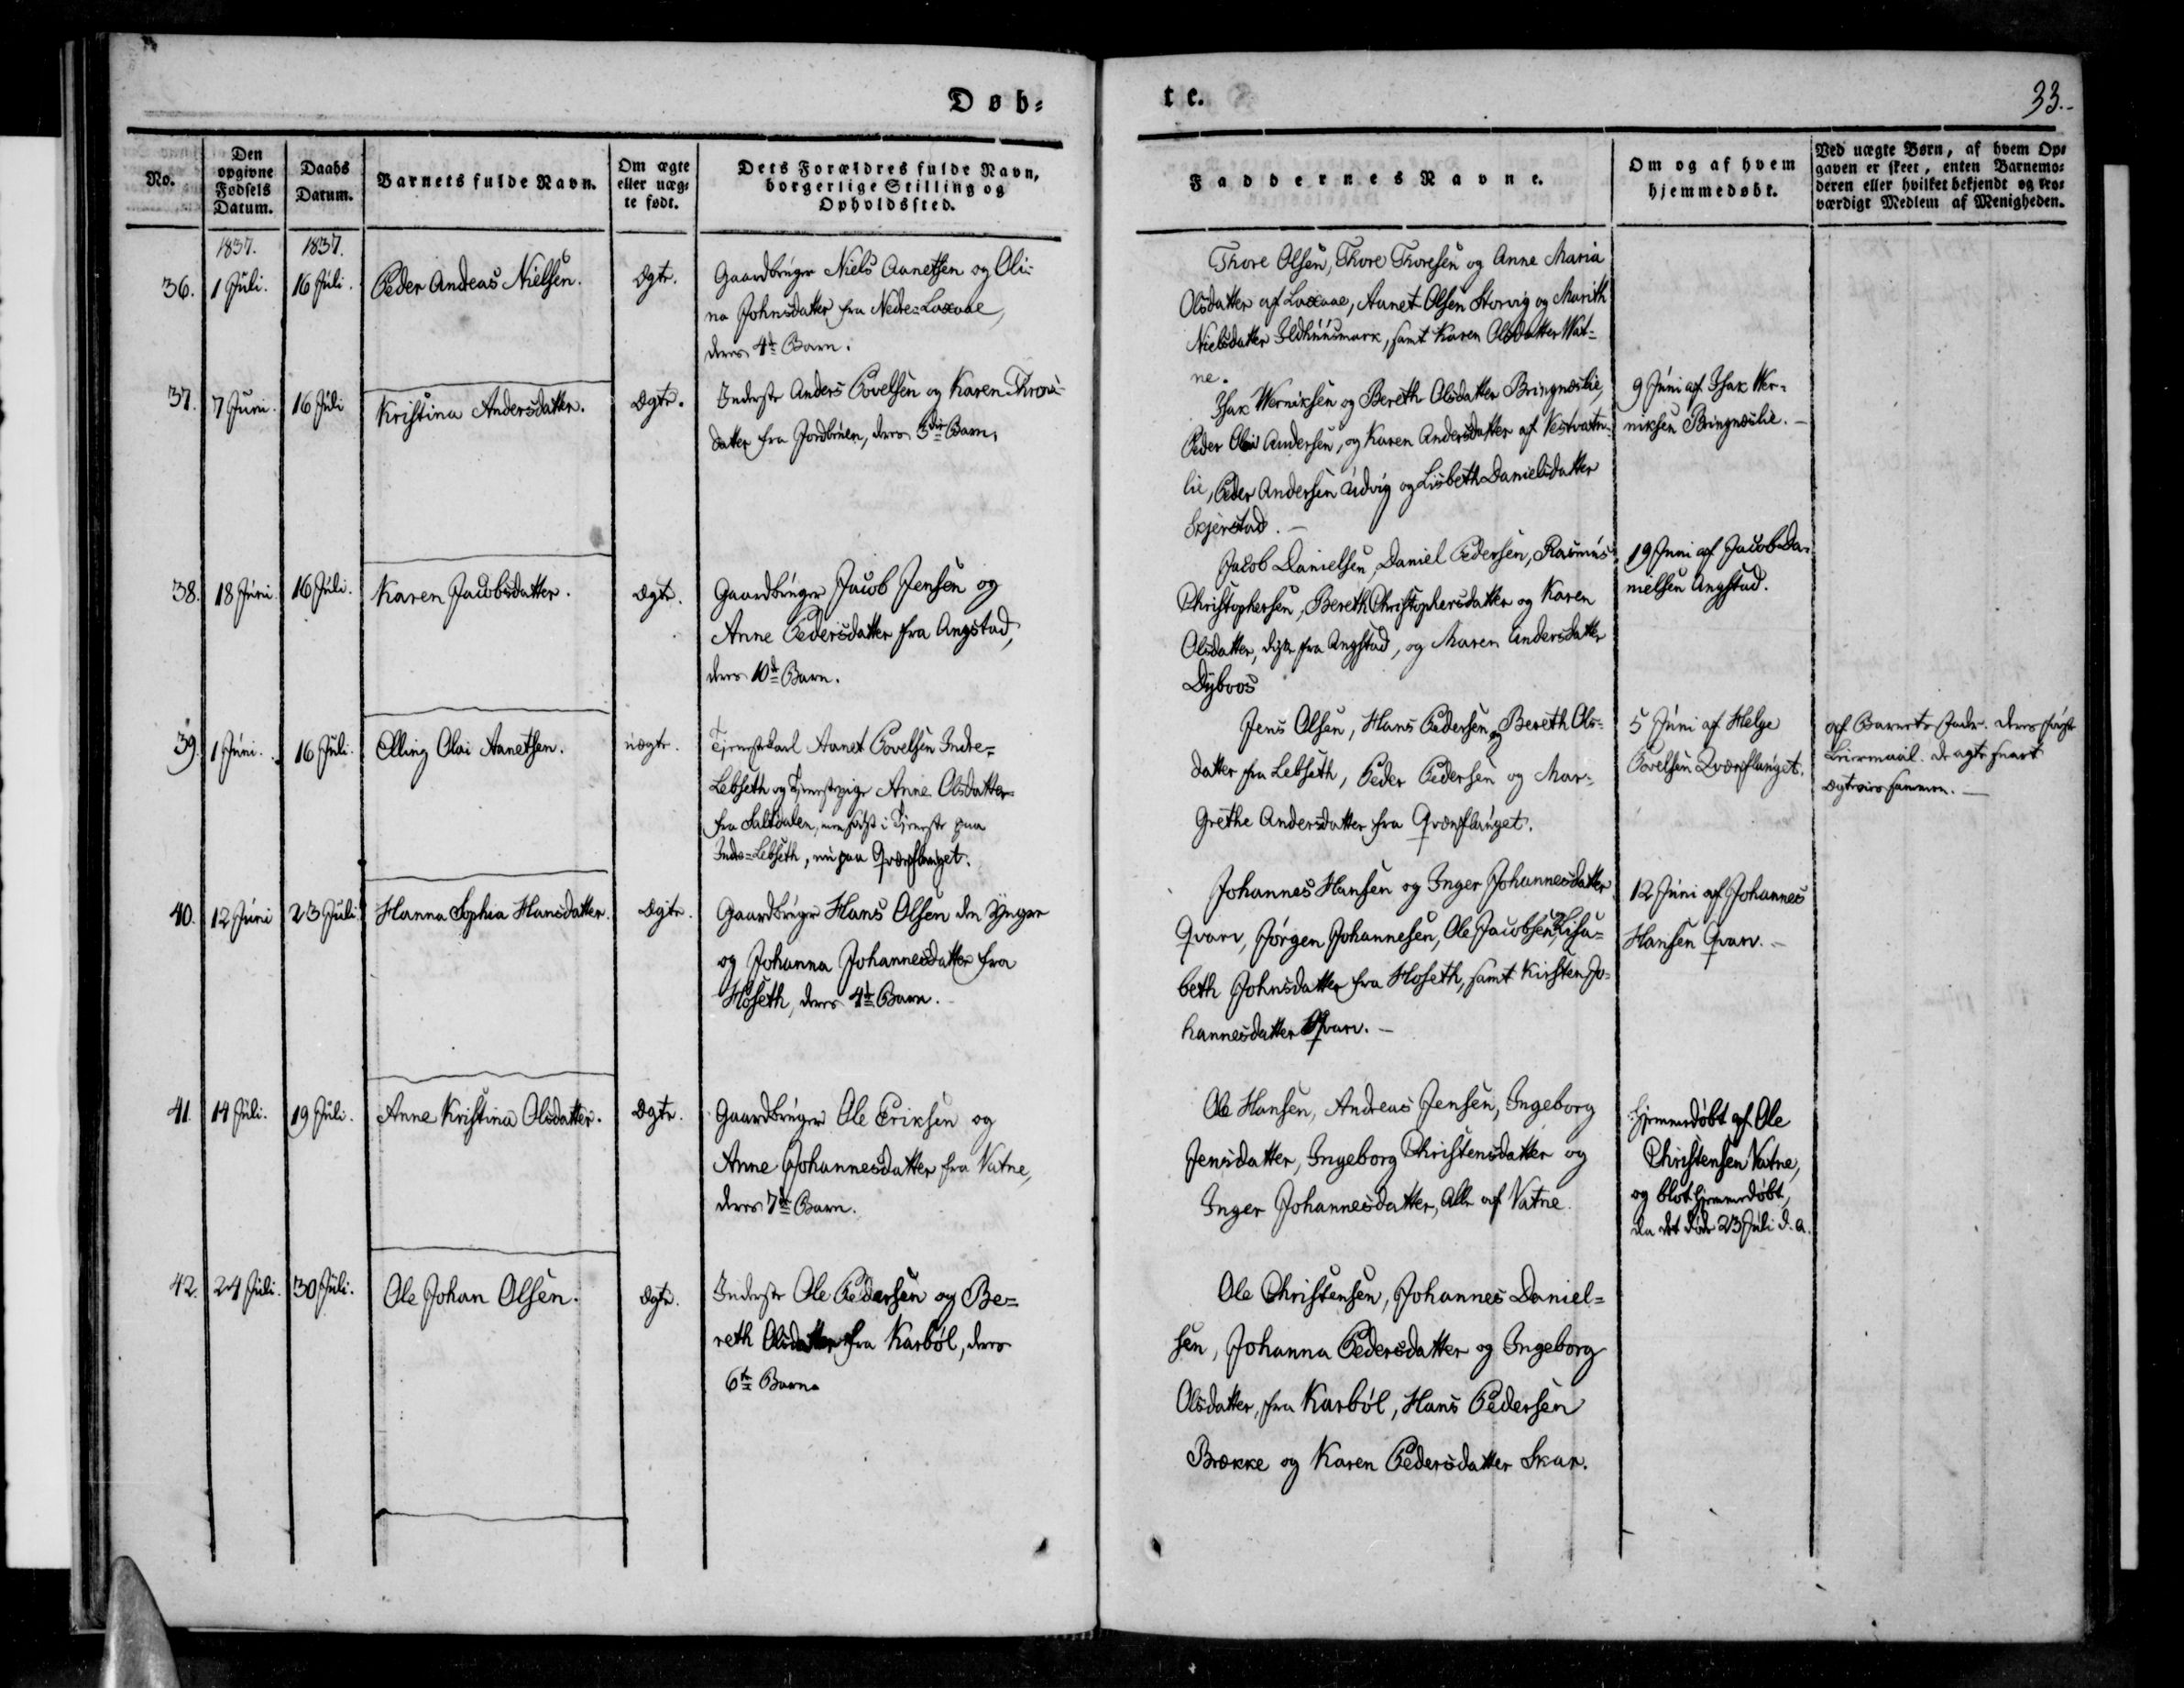 Døb-
te.
33.
No.
Den opgivne Fødsels Datum.
Daabs Datum.
Barnets fulde Navn.
Om ægte eller uæg- te født.
Dets Forældres fulde Navn, borgerlige Stilling og Opholdssted.
Faddernes Navne.
Om og af hvem hjemmedøbt.
Ved uægte Børn, af hvem Op- gaven er skeet, enten Barnemo- deren eller hvilket bekjendt og tro- værdigt Medlem af Menigheden.
1837.
1837.
36.
1 Juli.
16 Juli.
Peder Andreas Nielsen.
Ægte.
Gaardbruger Niels Aanetsen og Oli-
na Johnsdatter fra Nedre-Laxaae,
deres 4de Barn.
Thore Olsen, Thore Thoresen og Anne Maria
Olsdatter af Laxaae, Aanet Olsen Storvig og Marith
Nielsdatter Ildhuusmark, samt Karen Olsdatter Vat-
ne.
37.
7 Juni.
16 Juli
Kristina Andersdatter.
Ægte.
Inderst Anders Povelsen og Karen
datter fra Jordbruen, deres 3die Barn.
Isak Werniksen og Bereth Olsdatter Bringneslie,
Peder Olai Andersen, og Karen Andersdatter af Vestvatn-
lie, Peder Andersen Udvig og Lisbeth Danielsdatter
Skjerstad.
9 Juni af Isak Wer-
niksen Bringneslie.
38.
18 Juni
16 Juli.
Karen Jacobsdatter.
Ægte.
Gaardbruger Jacob Jensen og
Anne Pedersdatter fra Angstad,
deres 10de Barn.
Jacob Danielsen, Daniel Pedersen, Rasmus
Christophersen, Bereth Christophersdatter og Karen
Olsdatter, fra Angstad, og Maren Andersdatter
Dybvos
19 Juni af Jacob Da-
nielsen Angstad.
39.
1 Juni.
16 Juli.
Elling Olai Aanetsen.
uægte.
Tjenestekarl Aanet Povelsen Indre-
Lebseth og Tjenestepige Anne Olsdatter
fra Saltdalen, i Tjeneste paa
Indre-Lebseth, nu paa Qvænflauget.
Jens Olsen, Hans Pedersen og Bereth Ols-
datter fra Lebseth, Peder Pedersen og Mar-
grethe Andersdatter fra Qvænflauget.
5 Juni af Helge
Povelsen Qvænflauget.
af Barnets Fader. Deres første
Leiermaal. De agte snart
Ægtevies sammen.
40.
12 Juni
23 Juli
Hanna Sophia Hansdatter.
Ægte.
Gaardbruger Hans Olsen den Yngre
og Johanna Johannesdatter fra
Hoseth, deres 4de Barn.
Johannes Hansen og Inger Johannesdatter
Qvarv, Jørgen Johannesen, Ole Jacobsen, Elisa-
beth Johnsdatter fra Hoseth, samt Kirsten Jo-
hannesdatter Qvarv.
12 Juni af Johannes
Hansen Qvarv.
41.
14 Juli.
19 Juli.
Anne Kristina Olsdatter.
Ægte.
Gaardbruger Ole Eriksen og
Anne Johannesdatter fra Vatne,
deres 7de Barn.
Ole Hansen, Andreas Jensen, Ingeborg
Jensdatter, Ingeborg Christensdatter og
Inger Johannesdatter, Alle af Vatne.
Hjemmedøbt af Ole
Christensen Vatne,
og blot hjemmedøbt,
da det døde 23 Juli d. A.
42.
24 Juli.
30 Juli.
Ole Johan Olsen.
Ægte.
Inderst Ole Pedersen og Be-
reth Olsdatter fra Karbøl, deres
6te Barn
Ole Christensen, Johannes Daniel-
sen, Johanna Pedersdatter og Ingeborg
Olsdatter, fra Karbøl, Hans Pedersen
Brække og Karen Pedersdatter Skar.